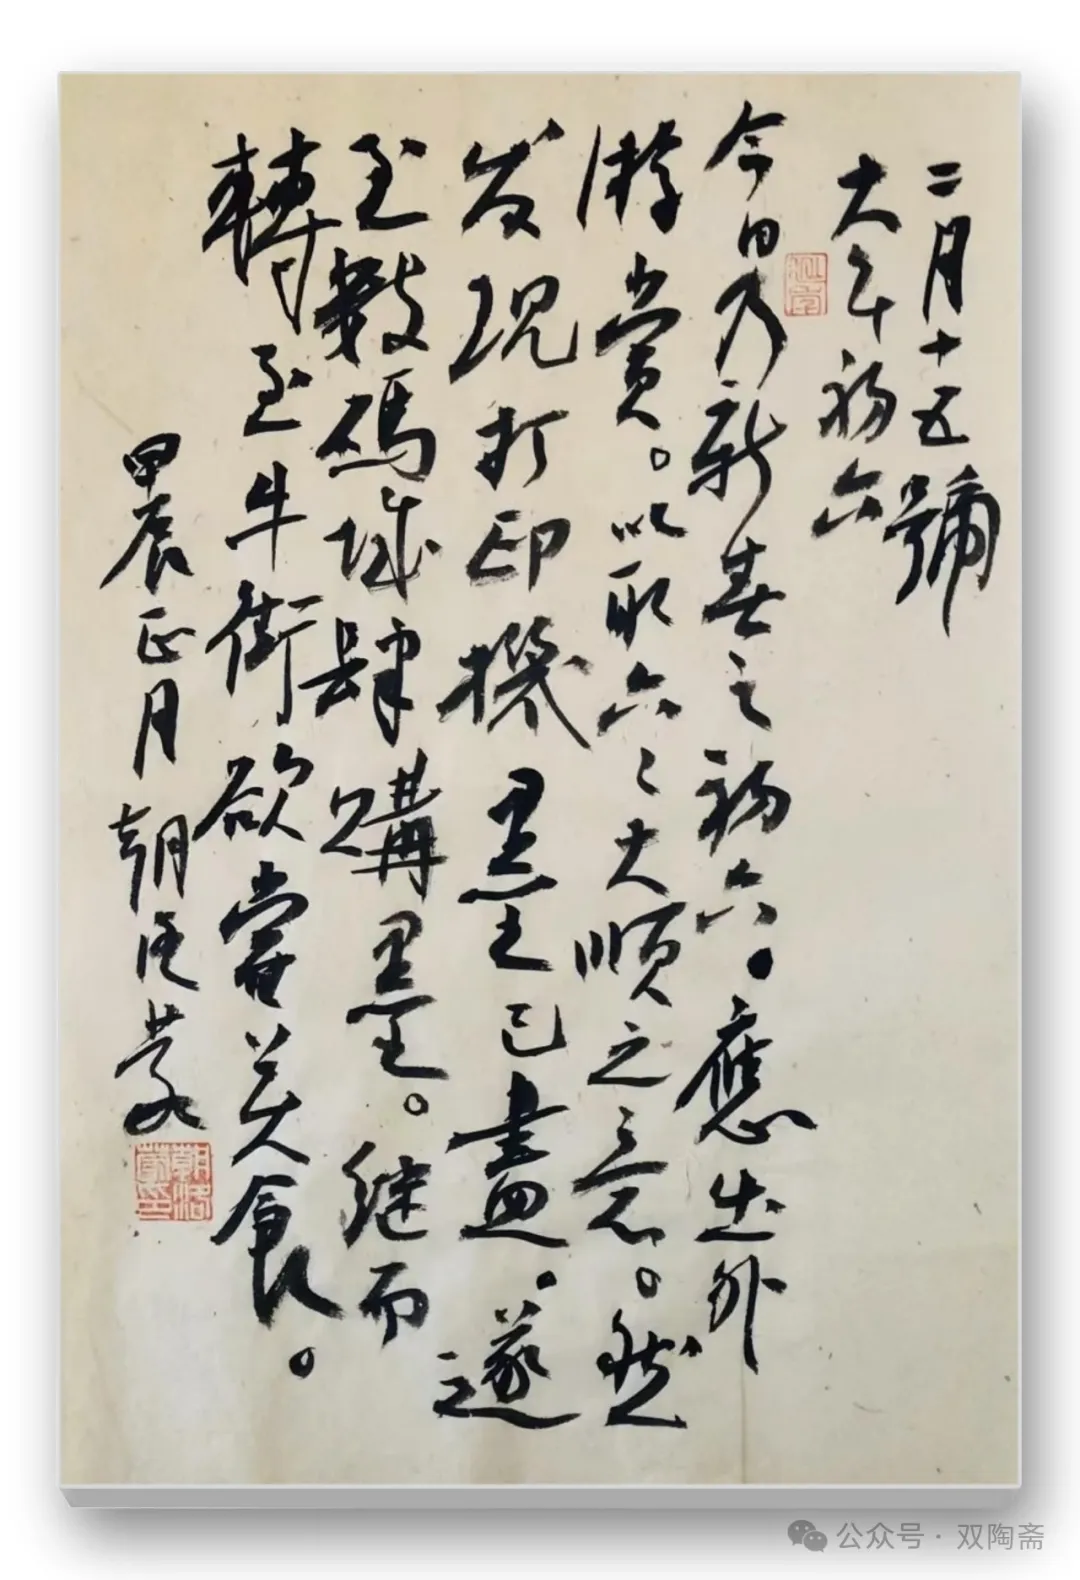 二月十五號
大年初六
今日乃新春之初六。應出外
游賞。以取六六大順之意。然
发現打印機墨已盡。遂
至數碼城肆購墨。継而
轉至牛街欲嘗美食。
甲辰正月朝洛蒙
公众号·双陶斋